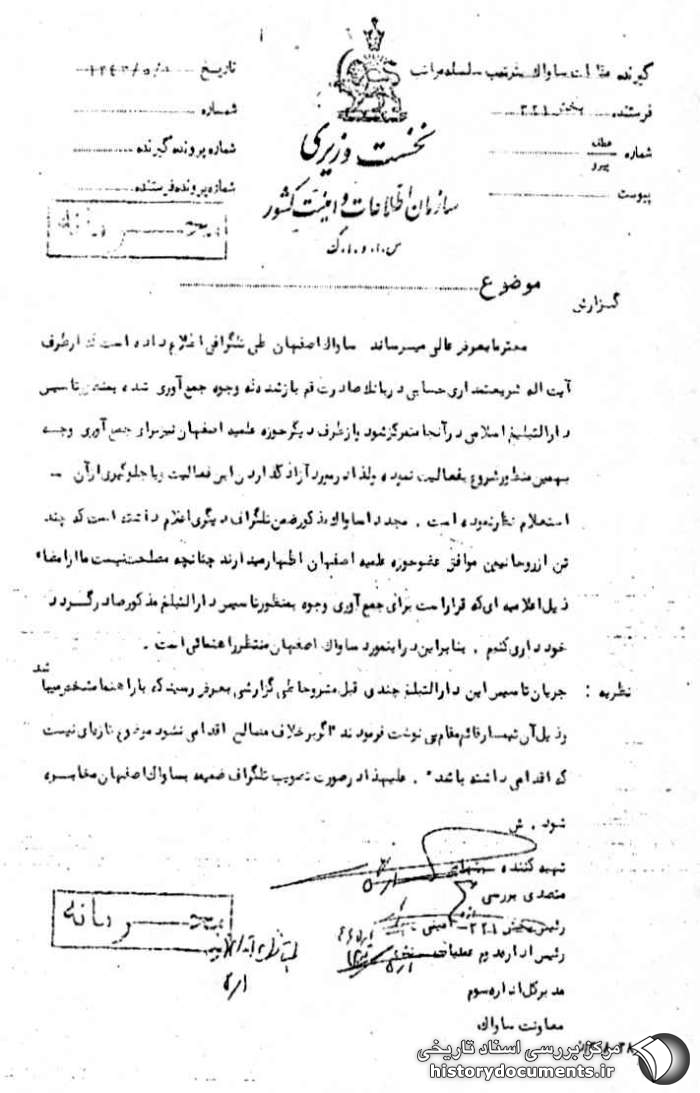 گیرنده مقامات ساواک بترتیب سلسله مراتب
فرستنده بخش ۳۲۱
شماره عطف
پیرو
پیوست
نخست وزیری
سازمان اطلاعات و امنیت کشور
س.ا.و.ا.ک
تاریخ
شماره
شماره پرونده گیرنده
شماره پرونده فرستنده
محرمانه
موضوع
گزارش
محترما بعرض عالی میرساند ساواک اصفهان طی تلگرافی اعلام داده است که از طرف
آیت اله شریعتمداری حسابی در بانک صادرت قم باز شده که وجوه جمع آوری شده بمنظور تاسیس
دارالتبلیغ اسلامی در آنجا متمرکز شود و از طرف دیگر حوزه علمیه اصفهان نیز برای جمع آوری وجه
بهمین منظور شروع بفعالیت نموده ولذا در مورد آزاد گذاردن این فعالیت و یا جلوگیری از آن
استعلام نظر نموده است . مجددا ساواک مذکور ضمن تلگراف دیگری اعلام داشته است که چند
تن از روحانیین موافق عضو حوزه علمیه اصفهان اظهار میدارند چنانچه مصلحت نیست ما از امضاء
ذیل اعلامیه ای که قرار است برای جمع آوری وجوه بمنظور تاسیس دارالتبلغ مذکور صادر گردد
خودداری کنیم . بنابراین در اینمورد ساواک اصفهان منتظر راهنمائی است .
نظریه : جریان تاسیس این دارالتبلغ چندی قبل مشروحا طی گزارشی بعرض رسید که با راهنما مشخص میباشد
وذیل آن تیمسار قائم مقام پی نوشت فرمودند "اگر برخلاف مصالح اقدامی نشود موضوع تازه‌ای نیست
که اقدامی داشته باشد" . علیهذا در صورت تصویب تلگراف ضمیمه بساواک اصفهان مخابره
شود . ش
تهیه کننده
متصدی بررسی
رئیس بخش ۳۲۱ - امینی
رئیس اداره دوم عملیات
مدیرکل اداره سوم
معاونت ساواک
محرمانه
مرکز بررسی اسناد تاریخی
historydocuments.ir